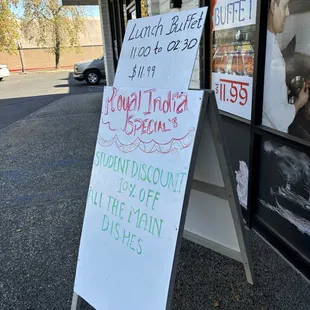 Lunch Buffet
11:00 to 02:30
$11.99
Royal India
SPECIAL'S
STUDENT DISCOUNT
10% OFF
ALL THE MAIN
DISHES
BUFFET!
$11.99